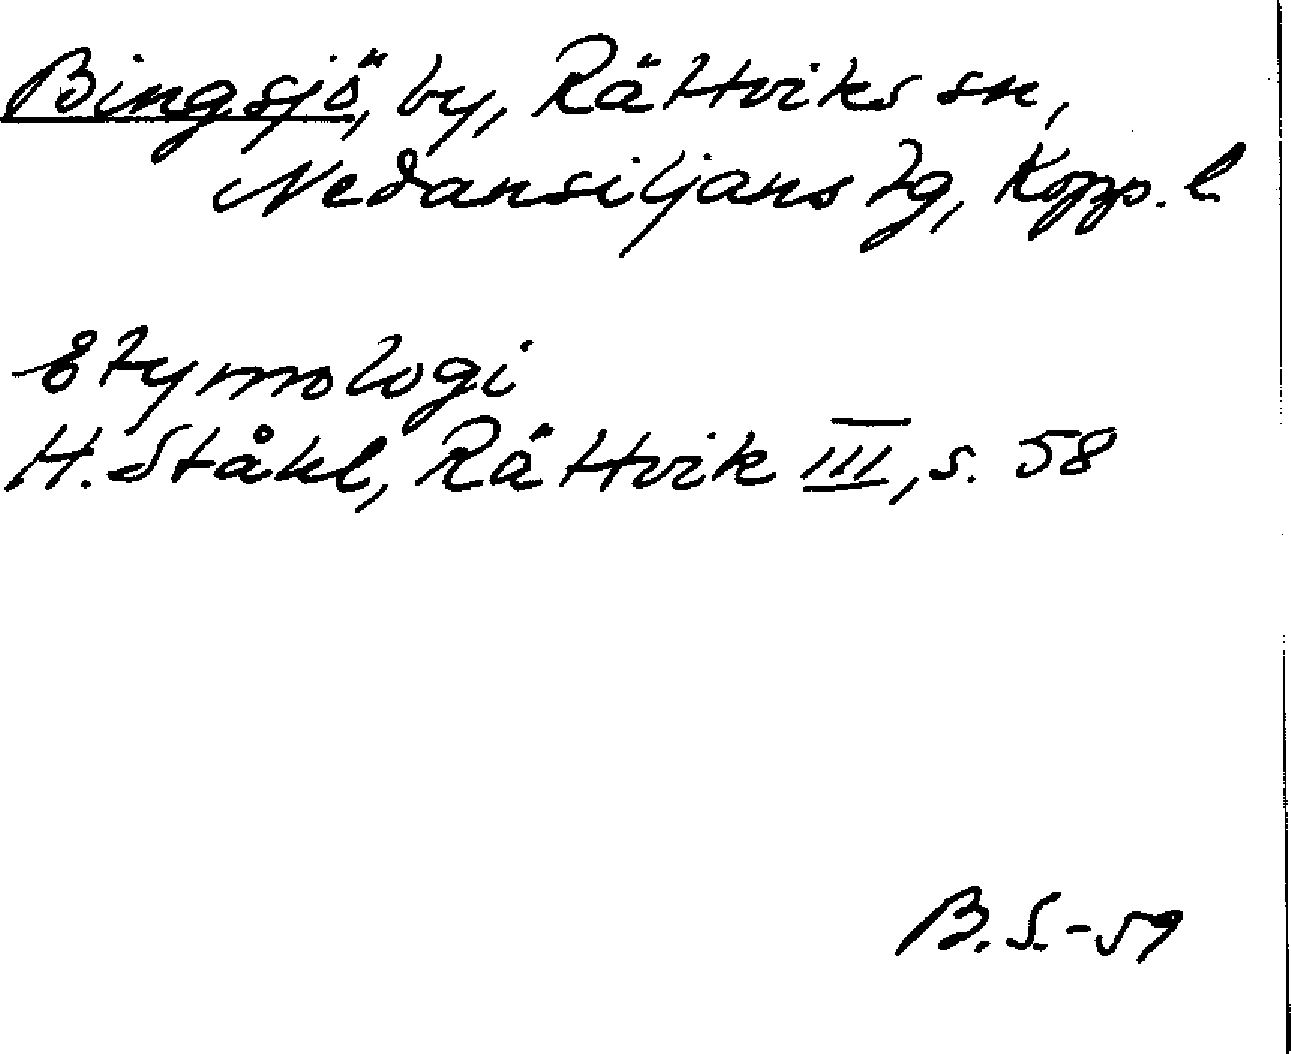 Bingsjö, by, Rättviks sn,
Nedansiljans tg, Kopp. l.
Etymologi
H. Ståhl, Rättvik III, s. 58
B. S. -59